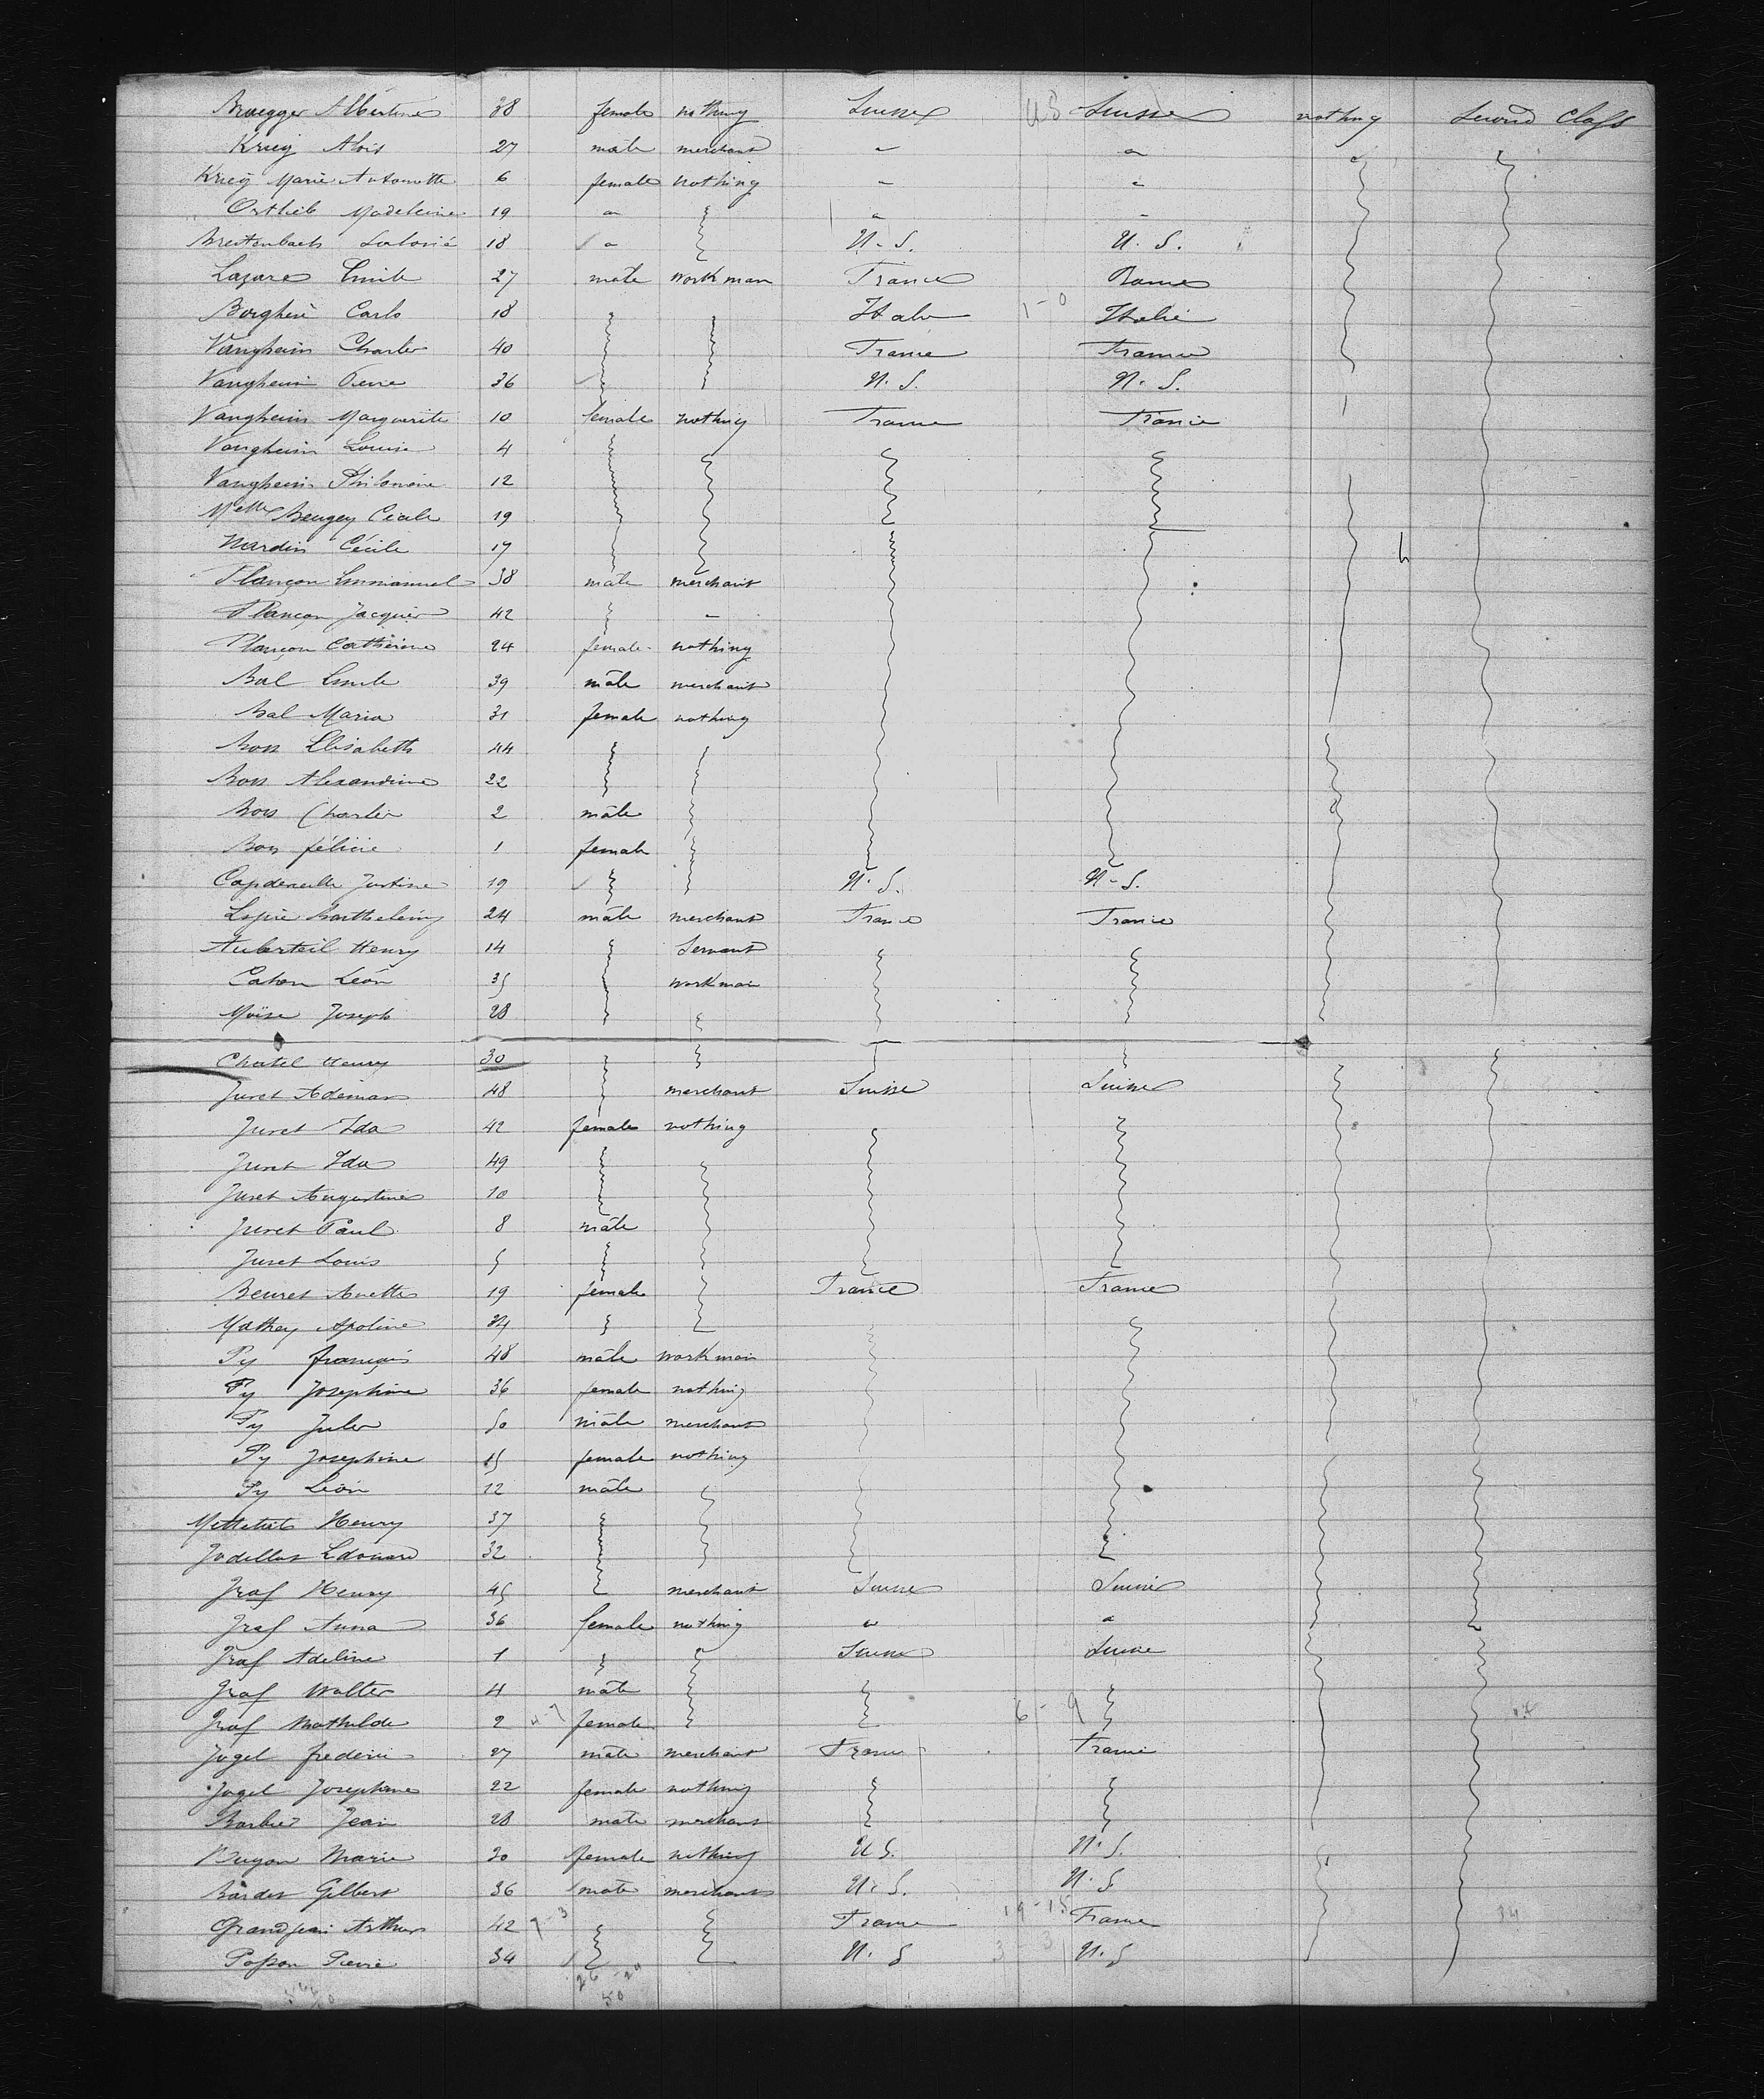 Bruegger Albertine 38 female nothing Suisse US Suisse nothing Second Class
Krieg Aloïs 27 male merchant " "
Krieg Marie Antoinette 6 female nothing " "
Ortlieb Madeleine 19 " " "
Breitenbach 18 " U. S. U. S.
Lazare Emile 27 male workman France
Borghèse Carlo 18 1-0 Italie
Vangheim Charles 40 France France
Vangheim Pierre 36 U. S. U. S.
Vangheim Marguerite 10 female nothing France France
Vangheim Louise 4
Vangheim Philomène 12
Melle Beugey Cécile 19
Nardin Cécile 17
Plançon Emmanuel 38 mâle merchant
Plançon Jacques 42 "
Plançon Catherine 24 female nothing
Bal Emile 39 mâle merchant
Bal Maria 31 female nothing
Bon Elisabeth 44
Bon Alexandrine 22
Bon Charles 2 mâle
Bon félicie 1 female
Capdeville Justine 19 U. S. U. S.
Barthelemy 24 mâle merchant France France
Auberteil Henry 14 Servant
Cahen Léon 35 workman
Moïse Joseph 28
Chatel Henry 30
Juret Ademar 48 merchant Suisse Suisse
Juret Ida 42 female nothing
Juret Ida 49
Juret Augustine 10
Juret Paul 8 mâle
Juret Louis 5
Beuret Anette 19 female France France
Mathey Apoline 34
Py françois 48 mâle workman
Py Josephine 36 female nothing
Py Jules 50 mâle merchant
Py Josephine 15 female nothing
Py Léon 12 mâle
Mettetal Henry 37
Edouard 32
Graf Henry 45 merchant Suisse Suisse
Graf Anna 36 female nothing " "
Graf Adeline 1 Suisse Suisse
Graf Walter 4 mâle
Graf Mathilde 2 4-7 female 6-9
Jogel frederic 27 mâle merchant France France
Jogel Josephine 22 female nothing
Barbier Jean 28 male merchant
Buyon Marie 30 female nothing U S. U. S.
Bardet Gilbert 36 male merchant U. S. U. S
Grandjean Arthur 42 7-3 France 19-15 France
Posson Pierre 34 U. S 3-3 U. S
26-24
50